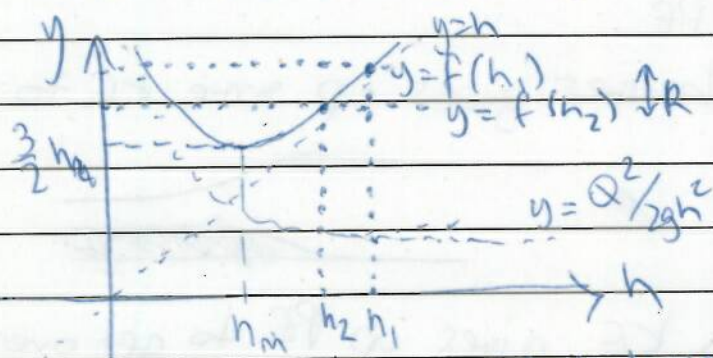 y
y=h
y=f(h₁)
y=f(h₂) ↕R
3/2 hₘ
y=Q²/2gh²
h
hₘ h₂ h₁